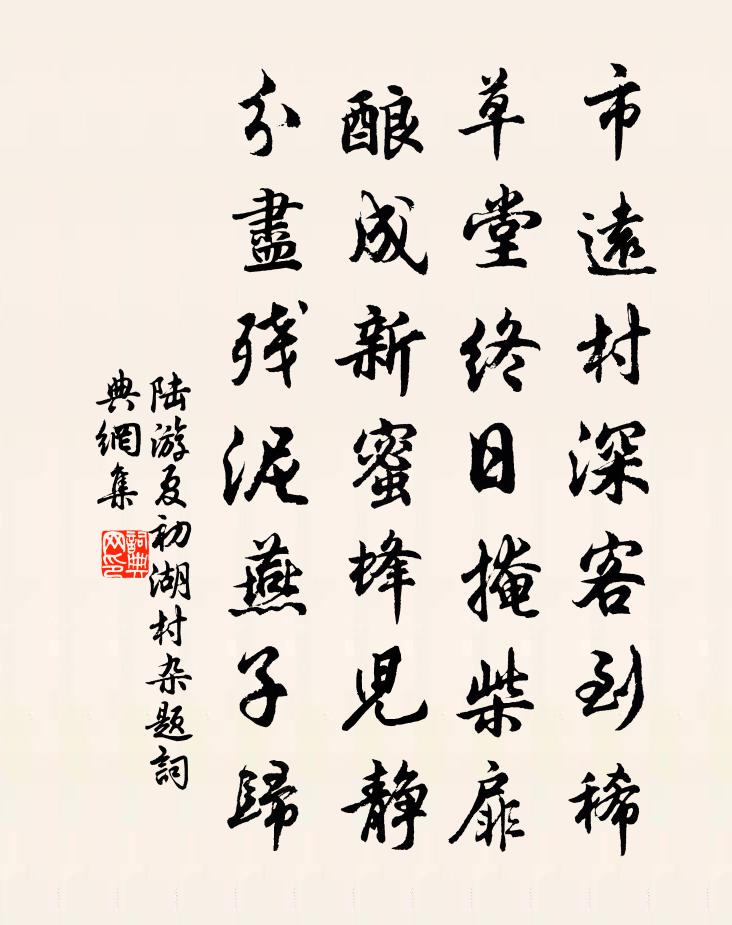 市遠村深客到稀
草堂終日掩柴扉
酿成新蜜蜂児静
分盡残泥燕子歸
陆游夏初湖村杂题詞
典網集
詞典网印